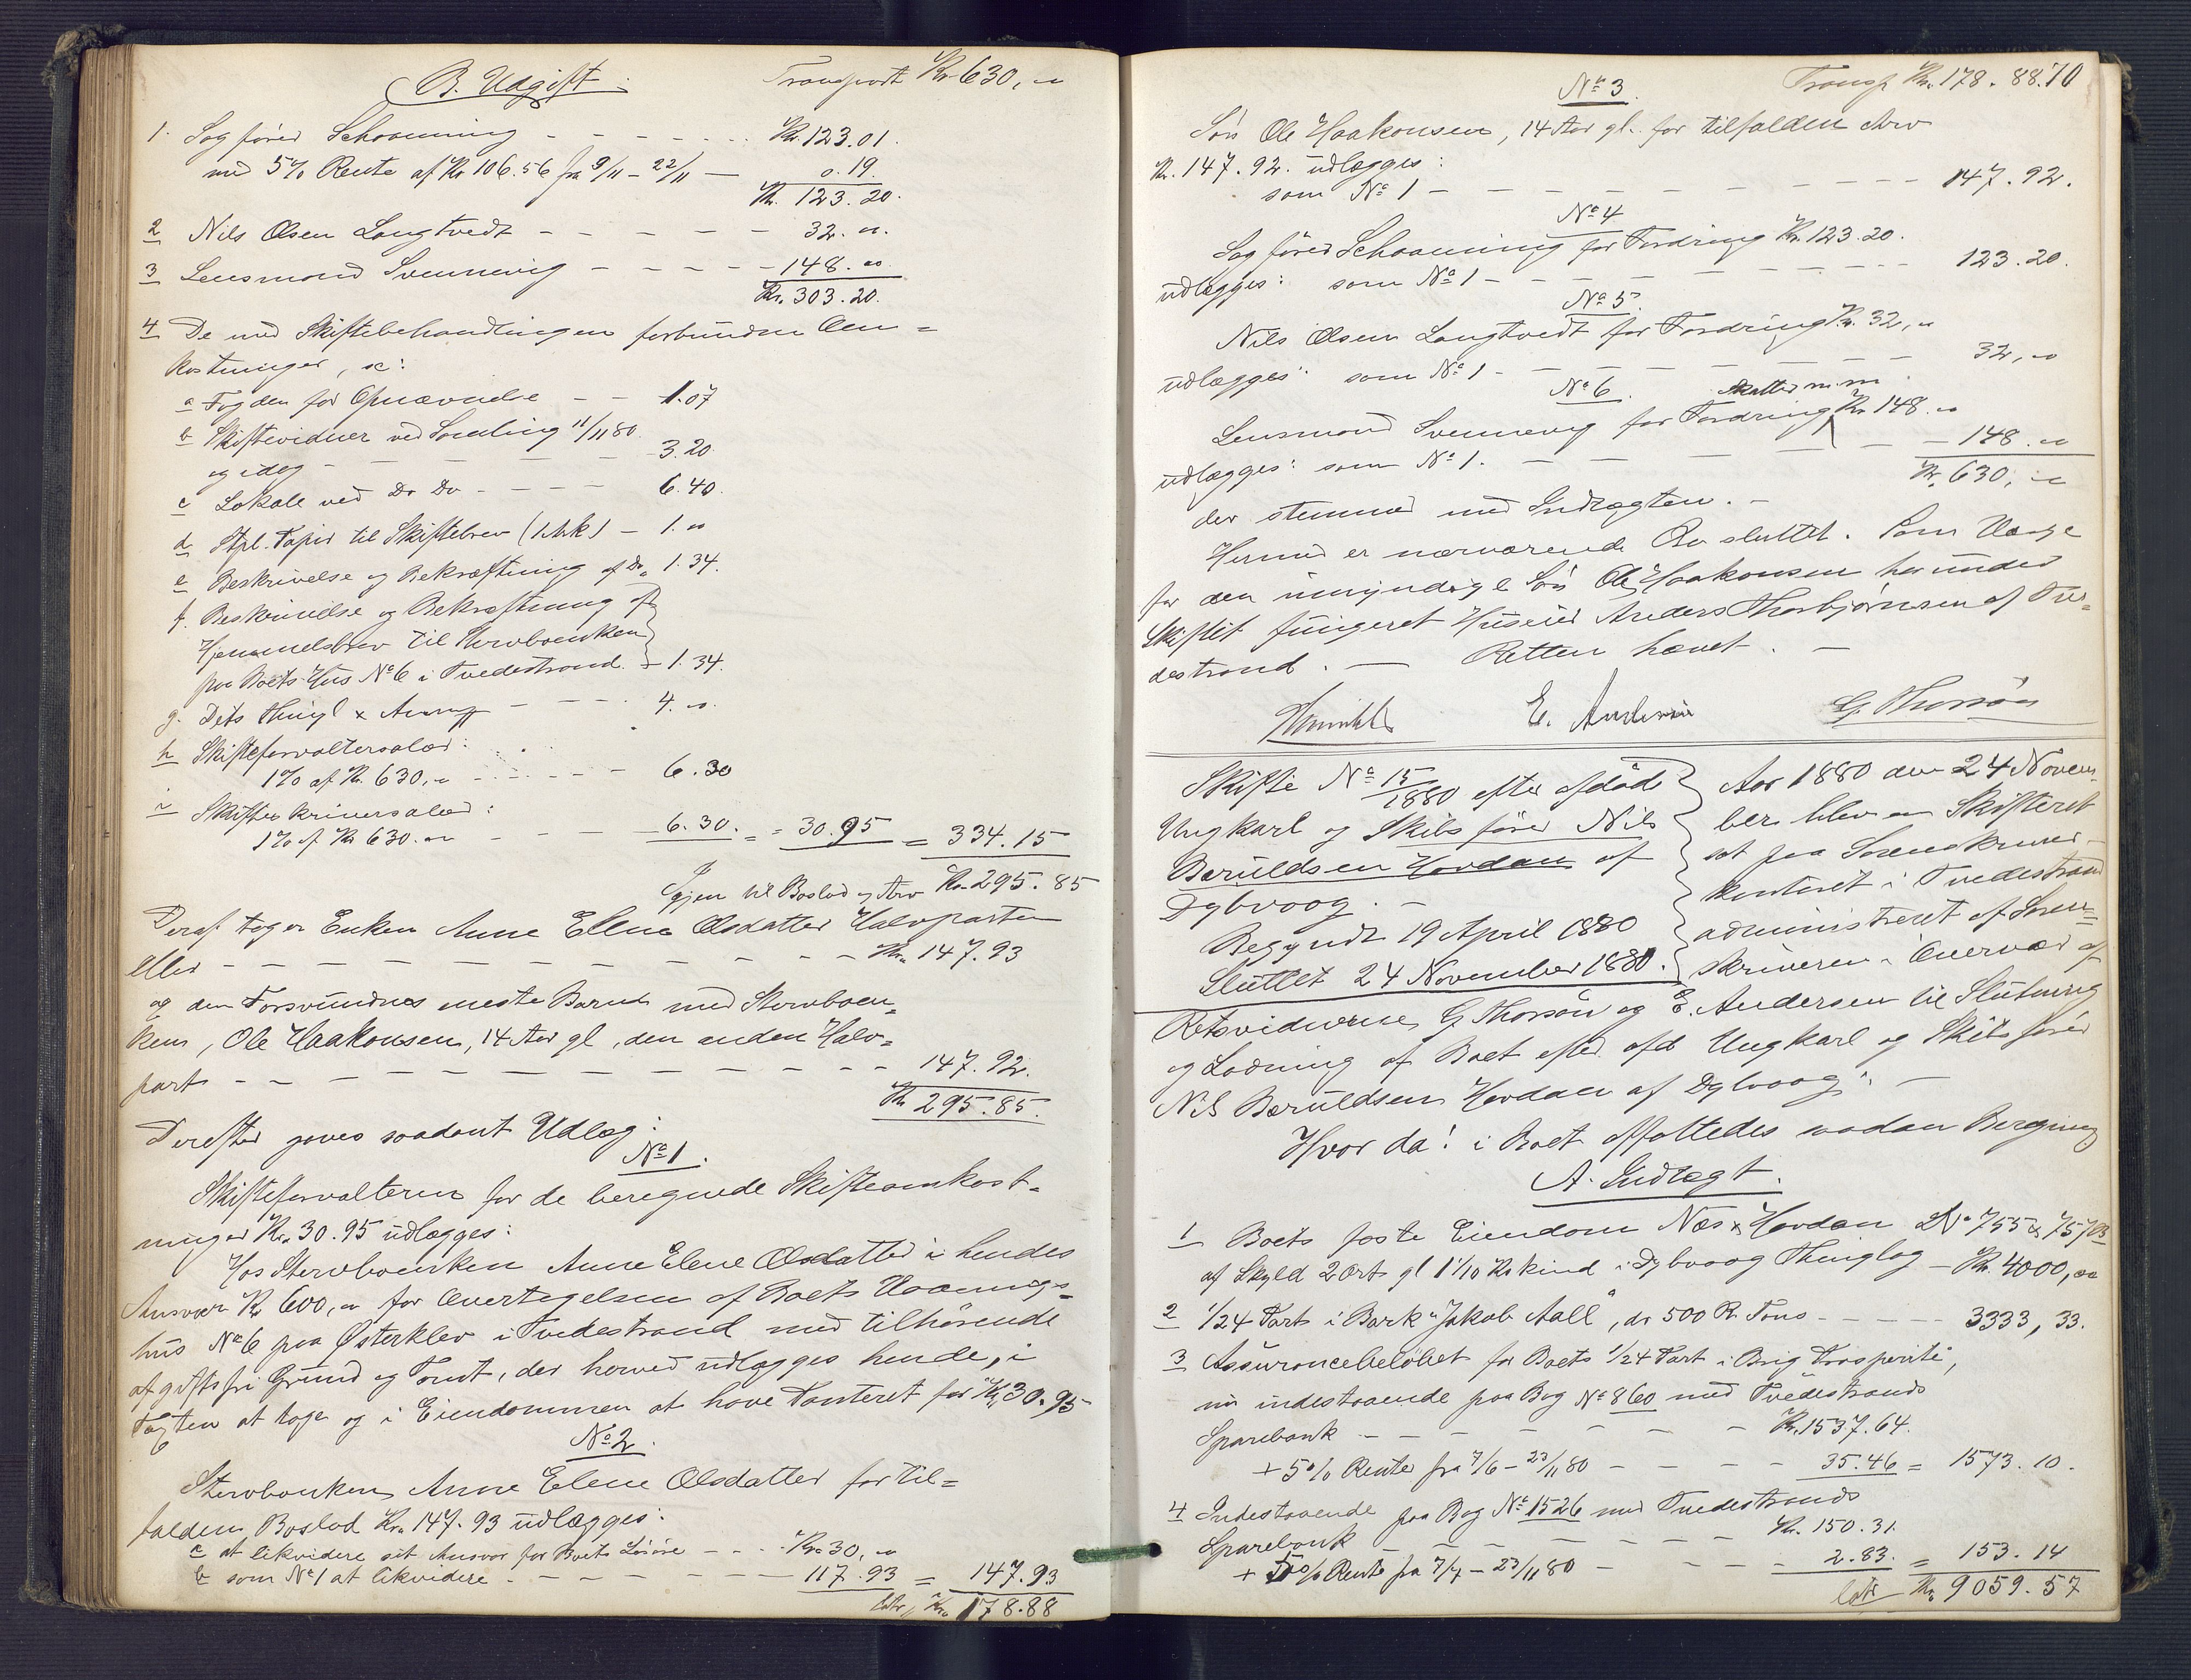 B. Udgift. Transport Kr. 630, "
1. Sagfører Schaanning - - - Kr. 123.01.
med 5% Rente af Kr 106.56 fra 9/11 - 22/11 — 0.19.
Kr. 123.20.
2 Nils Olsen Langtvedt - - - 32. ".
3 Lensmand Svennevig - - - 148. "
Kr. 303.20.
4 De med Skiftebehandlingen forbundne Om=
kostninger, sc:
a Fogden for Opnævnelse - - 1.07
b Skiftevidner ved Samling 11/11 80
og idag - - - 3.20
c Lokale ved Do Do - - - 6.40.
d Stpl. Papir til Skiftebrev (1 Ark) - 1. "
e Beskrivelse og Bekræftning af Do 1.34.
f. Beskrivelse og Bekræftning af
Hjemmelsbrev til Stervboenken
paa Boets Hus No 6 i Tvedestrand. - 1.34.
g. Dets Thingl & - - - 4. ".
h Skifteforvaltersalær:
1% af Kr. 630, " - - - 6.30
i Skifteskriversalær:
1% af Kr 630. " - - - 6.30. = 30.95 = 334.15
Igjen til Boslod og Arv Kr. 295.85
Deraf tager Enken Anne Elene Olsdatter Halvparten
eller - - - Kr. 147.93
og den Forsvundnes eneste Barn med Stervboen=
ken, Ole Haakonsen, 14 Aar gl, den anden Halv=
part - - - 147.92.
Kr. 295.85.
Derefter gaves saadant Udlæg:
No 1.
Skifteforvalteren for de beregnede Skifteomkost=
ninger Kr. 30.95 udlægges:
Hos Stervboenken Anne Elene Olsdatter i hendes
Ansvar Kr 600, " for Overtagelsen af Boets Vaanings=
hus No 6 paa Østerklev i Tvedestrand med tilhørende
afgiftsfri Grund og Tomt, der herved udlægges hende, i
Pagten at tage og i Eiendommen at have Panteret for Kr. 30.95
No 2.
Stervboenken Anne Elene Olsdatter for til=
falden Boslod Kr. 147.93 udlægges:
a at likvidere sit Ansvar for Boets Løsøre - - - Kr. 30, "
b som No 1 at likvidere - - - 117.93 = 147.93
Lats Kr. 178.88
No 3. Transp Kr. 178.88.70
Søn Ole Haakonsen, 14 Aar gl. for tilfalden Arv
Kr. 147.92. udlægges:
som No 1 - - - 147.92.
No 4
Sagfører Schaanning for Fordring Kr. 123.20.
udlægges: som No 1 - - - 123.20.
No 5.
Nils Olsen Langtvedt for Fordring Kr. 32, "
udlægges: som No 1 - - - 32, "
No 6. Skatter m. m.
Lensmand Svennevig for Fordring Kr 148. "
udlægges: som No 1. - - - 148. "
Kr. 630, "
der stemmer med Indtægten. -
Hermed er nærværende Bo sluttet. Som Værge
for den umyndige Søn Ole Haakonsen har under
Skiftet fungeret Huseier Anders Thorbjørnsen af Tve=
destrand. — Retten hævet. —
E. Andersen G. Thorsøn
Skifte No 15/1880 efter afdøde
Ungkarl og Skibsfører Nils
Beruldsen Hovdan af
Dybvaag. -
Begyndt 19 April 1880
Sluttet 24 November 1880.
Aar 1880 den 24 Novem
ber blev en Skifteret
sat paa Sorenskriver-
kontoret i Tvedestrand
administreret af Soren=
skriveren i Overvær af
Retsvidnerne G. Thorsøn og E. Andersen til Slutning
og Lodning af Boet efter afd Ungkarl og Skibsfører
Nils Beruldsen Hovdan af Dybvaag. —
Hvor da! i Boet affattedes saadan Beregning
A. Indtægt.
1 Boets faste Eiendom Næs & Hovdan LNo 755 & 757 B
af Skyld 2 Ort gl 1 1/10 Kskind i Dybvaag Thinglag - Kr. 4000, "
2 1/24 Part i Bark "Jakob Aall", dr 500 R. Tons - - - 3333, 33.
3 Assurancebeløbet for Boets 1/24 Part i Brig Prosperité,
nu indestaaende paa Bog No 860 med Tvedestrands
Sparebank - - - Kr. 1537.64.
+ 5% Renter fra 7/6 - 23/11 80 - - - 35.46 = 1573.10.
4 Indestaaende paa Bog No 1526 med Tvedestrands
Sparebank - - - Kr. 150.31.
+ 5% Rente fra 7/7 - 23/11 80 - - - 2.83. = 153.14
Lats Kr. 9059.57